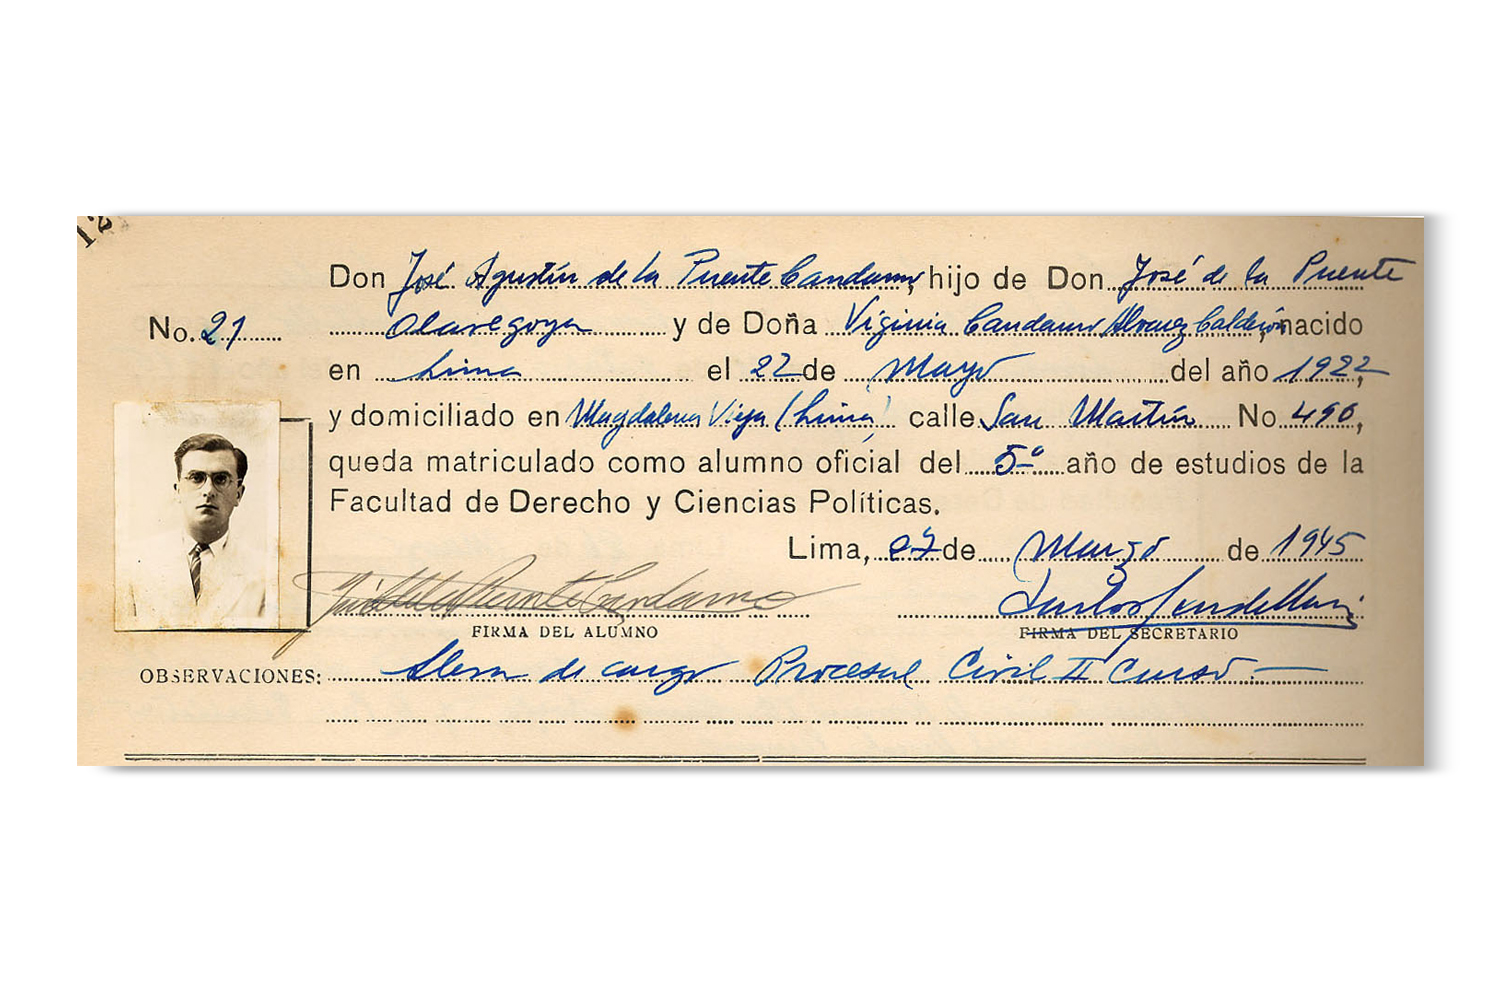 12
Don José Agustín de la Puente Candamo, hijo de Don José de la Puente
No. 21 Olavegoya y de Doña Virginia Candamo Alvarez Calderón, nacido
en Lima el 22 de Mayo del año 1922,
y domiciliado en Magdalena Vieja (Lima) calle San Martín No. 490,
queda matriculado como alumno oficial del 5º año de estudios de la
Facultad de Derecho y Ciencias Políticas.
Lima, 27 de Marzo de 1945
FIRMA DEL ALUMNO FIRMA DEL SECRETARIO
OBSERVACIONES: Lleva de cargo Procesal Civil II Curso.—